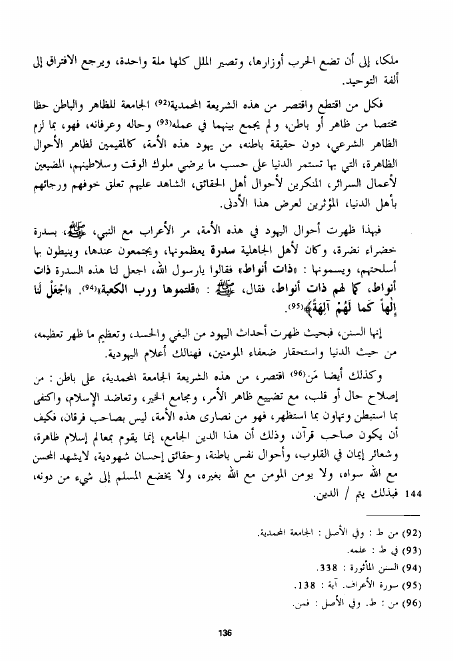 ملكا، إلى أن تضع الحرب أوزارها، وتصير الملل كلها ملة واحدة، ويرجع الافتراق إلى
ألفة التوحيد.
فكل من اقتطع واقتصر من هذه الشريعة المحمدية(92) الجامعة للظاهر والباطن حظا
مختصا من ظاهر أو باطن، ولم يجمع بينهما في عمله(93) وحاله وعرفانه، فهو، بما لزم
الظاهر الشرعي، دون حقيقة باطنه، من يهود هذه الأمة، كالمقيمين لظاهر الأحوال
الظاهرة، التي بها تستمر الدنيا على حسب ما يرضي ملوك الوقت وسلاطينهم، المضيعين
لأعمال السرائر، المنكرين لأحوال أهل الحقائق، الشاهد عليهم تعلق خوفهم ورجائهم
بأهل الدنيا، المؤثرين لعرض هذا الأدنى.
فبهذا ظهرت أحوال اليهود في هذه الأمة، مر الأعراب مع النبي، ﷺ، بسدرة
خضراء نضرة، وكان لأهل الجاهلية سدرة يعظمونها، ويجتمعون عندها، وينيطون بها
أسلحتهم، ويسمونها : «ذات أنواط» فقالوا يارسول الله، اجعل لنا هذه السدرة ذات
أنواط، كما لهم ذات أنواط، فقال، ﷺ : «قلتموها ورب الكعبة»(94). «اجْعَلْ لَنَا
إِلَهاً كَما لَهُمْ آلِهَةٌ﴾(95).
إنها السنن، فبحيث ظهرت أحداث اليهود من البغي والحسد، وتعظيم ما ظهر تعظيمه،
من حيث الدنيا واستحقار ضعفاء المومنين، فهنالك أعلام اليهودية.
وكذلك أيضا مَن(96) اقتصر، من هذه الشريعة الجامعة المحمدية، على باطن : من
إصلاح حال أو قلب، مع تضييع ظاهر الأمر، ومجامع الخير، وتعاضد الإسلام، واكتفى
بما استبطن وتهاون بما استظهر، فهو من نصارى هذه الأمة، ليس بصاحب فرقان، فكيف
أن يكون صاحب قرآن، وذلك أن هذا الدين الجامع، إنما يقوم بمعالم إسلام ظاهرة،
وشعائر إيمان في القلوب، وأحوال نفس باطنة، وحقائق إحسان شهودية، لايشهد المحسن
مع الله سواه، ولا يومن المومن مع الله بغيره، ولا يخضع المسلم إلى شيء من دونه،
144 فبذلك يتم / الدين.
(92) من ط : وفي الأصل : الجامعة المحمدية.
(93) في ط : علمه.
(94) السنن المأثورة : 338.
(95) سورة الأعراف. آية : 138.
(96) من : ط. وفي الأصل : فمن.
136